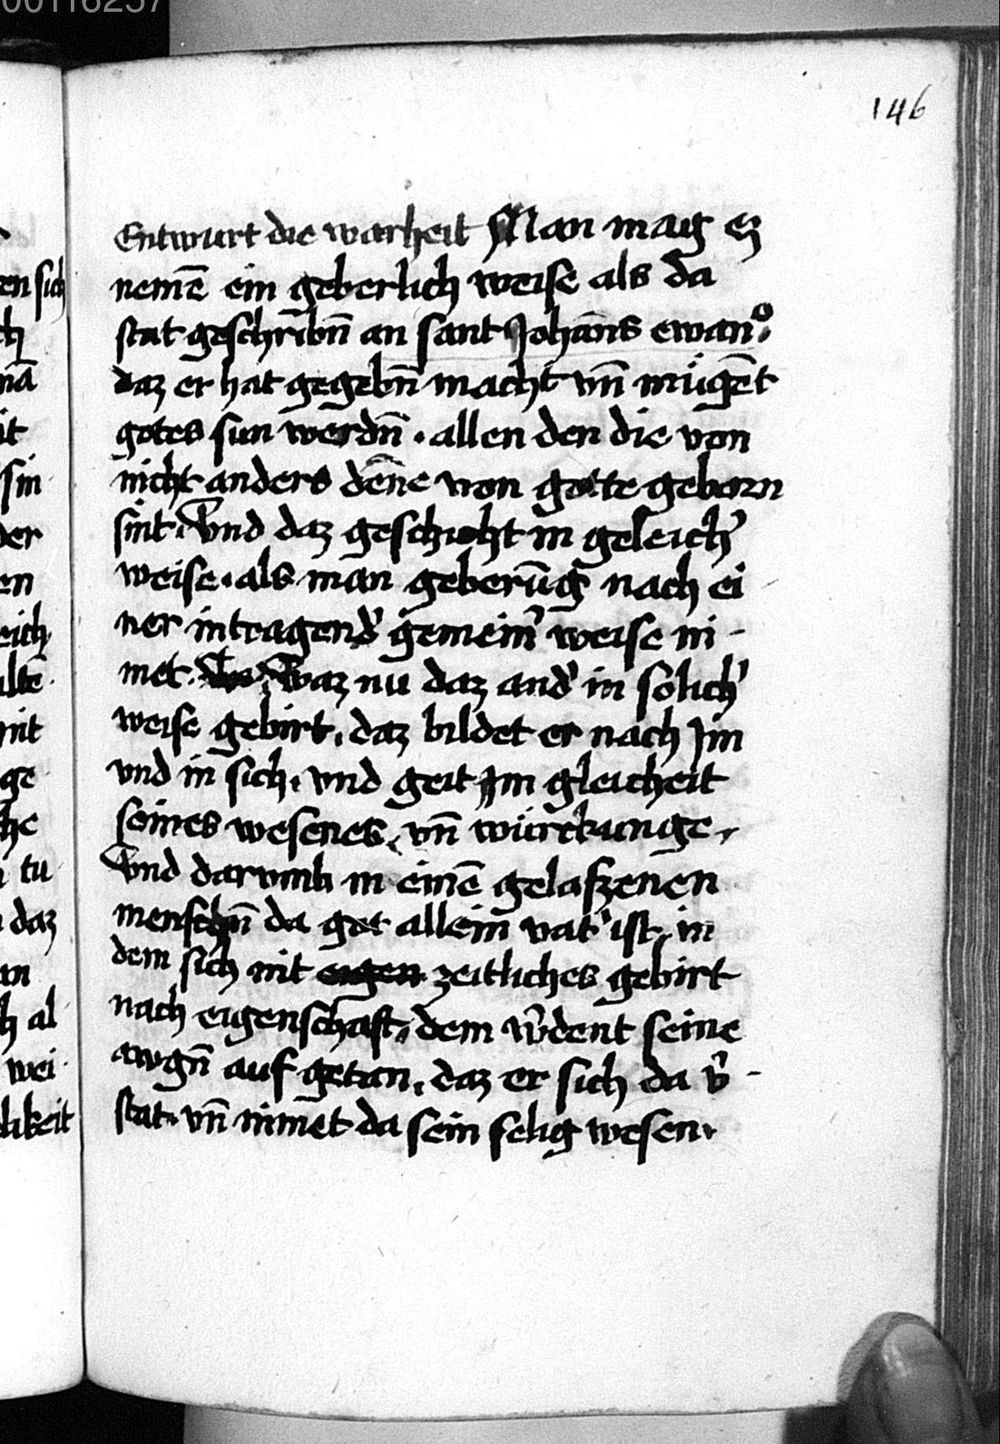 146
Entwurt die warheit Man mag ez
nemē ein geberlich weise als da
stat geschribn̄ an sant Johans ewan°.
daz er hat gegebn̄ macht vn̄ mügēt
gotes sun werdn̄ . allen den die von
nicht anders dēne von gotte geborn
sint . Vnd daz geschicht in geleich'
weise . als man geberūg nach ei
ner intragend' gemein' weise ni -
met . Waz nu daz and' in solich'
weise gebirt . daz bildet er nach Jm
vnd in sich . vnd geit Jm gleicheit
seines wesenes . vn̄ würckunge .
Vnd darvmb in einē gelaszenen
menschn̄ da got allein vat' ist . in
dem sich nit eigen zeitliches gebirt
nach eigenschaft . dem w'dent seine
awgn̄ auf getan . daz er sich da v' -
stat . vn̄ nimet da sein selig wesen .